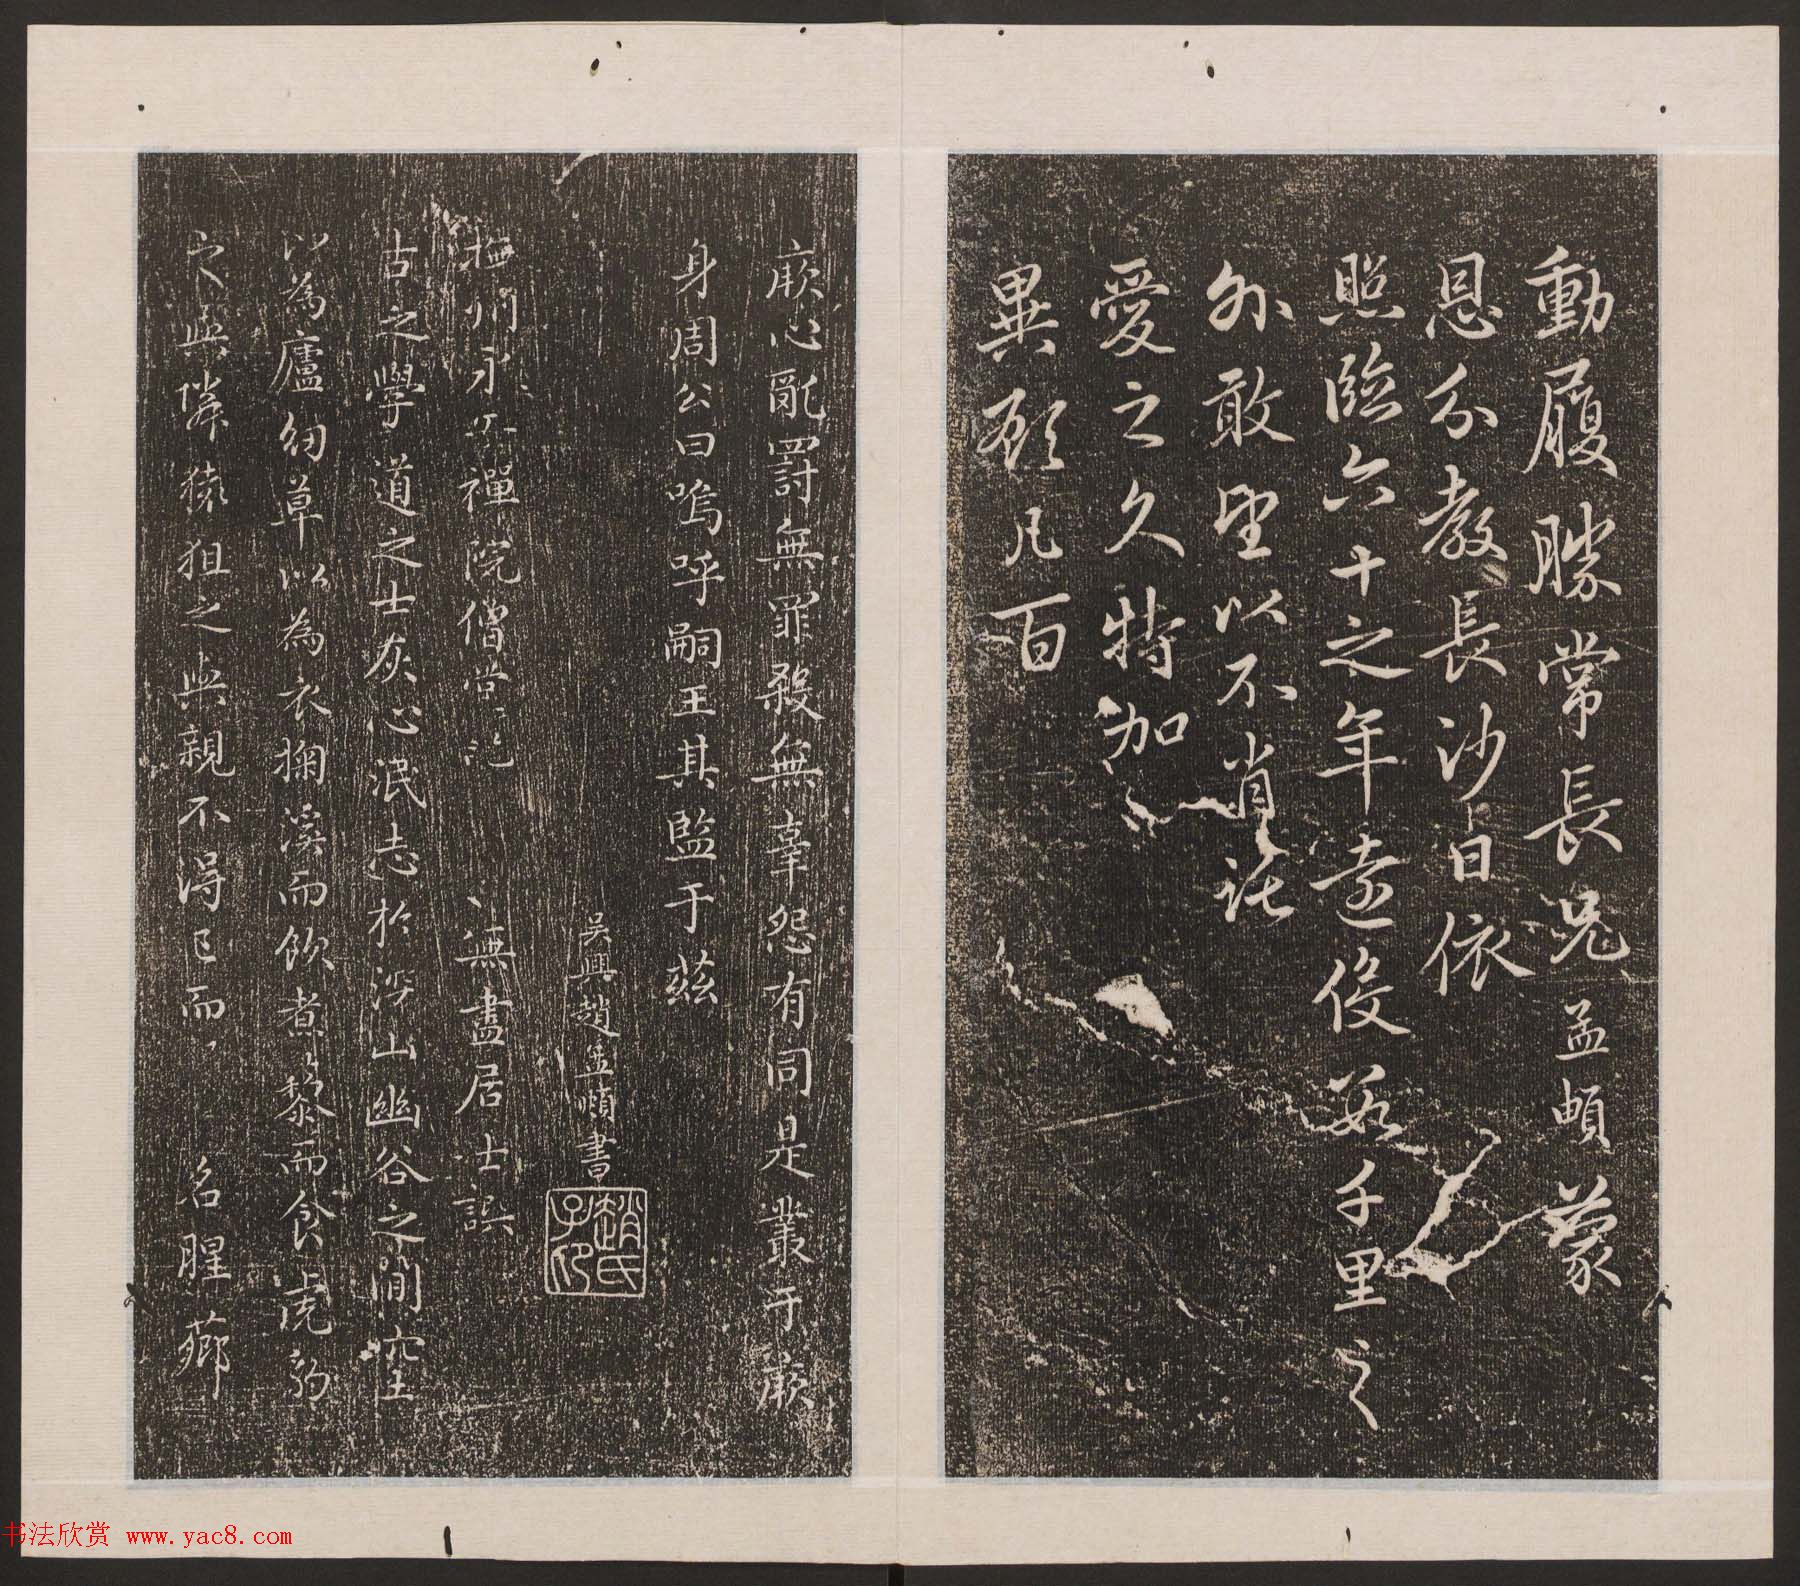 動履勝常長兄孟頫蒙
恩分教長沙日依
照臨六十之年遠役數千里之
外敢望以不肖託
愛之久特加
異顧凡百
厥心亂罰無罪殺無辜怨有同是叢于厥
身周公曰嗚呼嗣王其監于茲
吳興趙孟頫書
趙氏子印
撫州永安禪院僧堂記
無盡居士譔
古之學道之士灰心泯志於深山幽谷之間穴土
以為廬紉草以為衣掬溪而飲煮藜而食虎豹
之與憐猿狙之與親不得已而名腥薌
书法欣赏 www.yac8.com